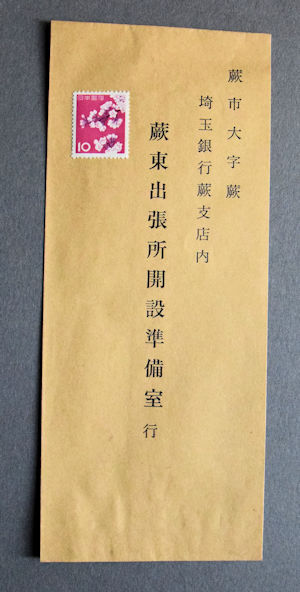 蕨市大字蕨
埼玉銀行蕨支店内
蕨東出張所開設準備室行
日本郵便
10